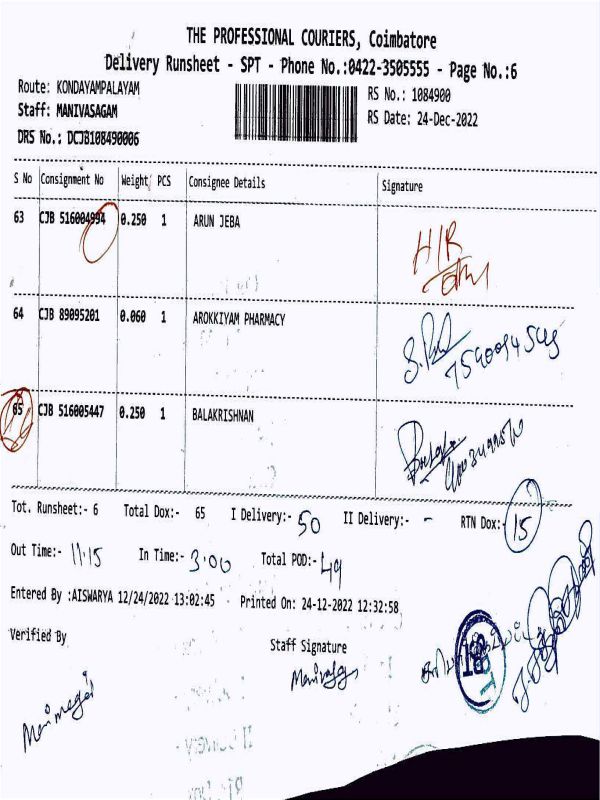 THE PROFESSIONAL COURIERS, Coimbatore
Delivery Runsheet - SPT - Phone No.:0422-3505555 - Page No.:6
Route: KONDAYAMPALAYAM
RS No.: 1084900
Staff: MANIVASAGAM
RS Date: 24-Dec-2022
DRS No.: DCJB108490006
S No Consignment No Weight PCS Consignee Details Signature
63 CJB 516004994 0.250 1 ARUN JEBA
H/R
64 CJB 89095201 0.060 1 AROKKIYAM PHARMACY
65 CJB 516005447 0.250 1 BALAKRISHNAN
Tot. Runsheet:- 6 Total Dox:- 65 I Delivery:- 50 II Delivery:- - RTN Dox:- 15
Out Time:- 11.15 In Time:- 3.00 Total POD:- 49
Entered By :AISWARYA 12/24/2022 13:02:45 Printed On: 24-12-2022 12:32:58
Verified By Staff Signature
18